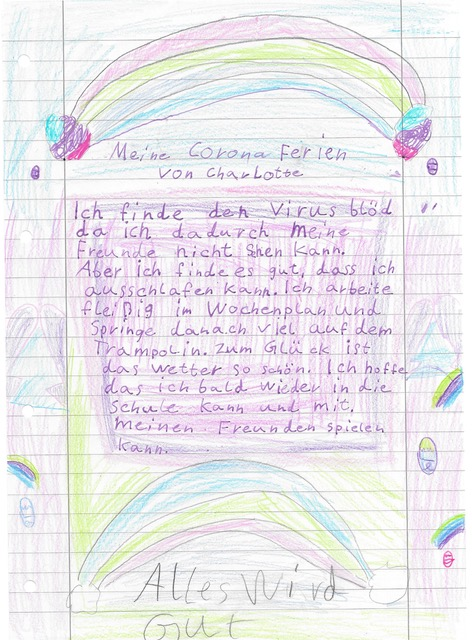 Meine Corona Ferien
von Charlotte
Ich finde den Virus blöd
da ich dadurch meine
Freunde nicht Sehen kann.
Aber ich finde es gut, dass ich
ausschlafen kann. Ich arbeite
fleißig im Wochenplan und
Springe danach viel auf dem
Trampolin. Zum Glück ist
das wetter so schön. Ich hoffe
das ich bald wieder in die
Schule kann und mit,
meinen Freunden spielen
kann.
Alles Wird
Gut